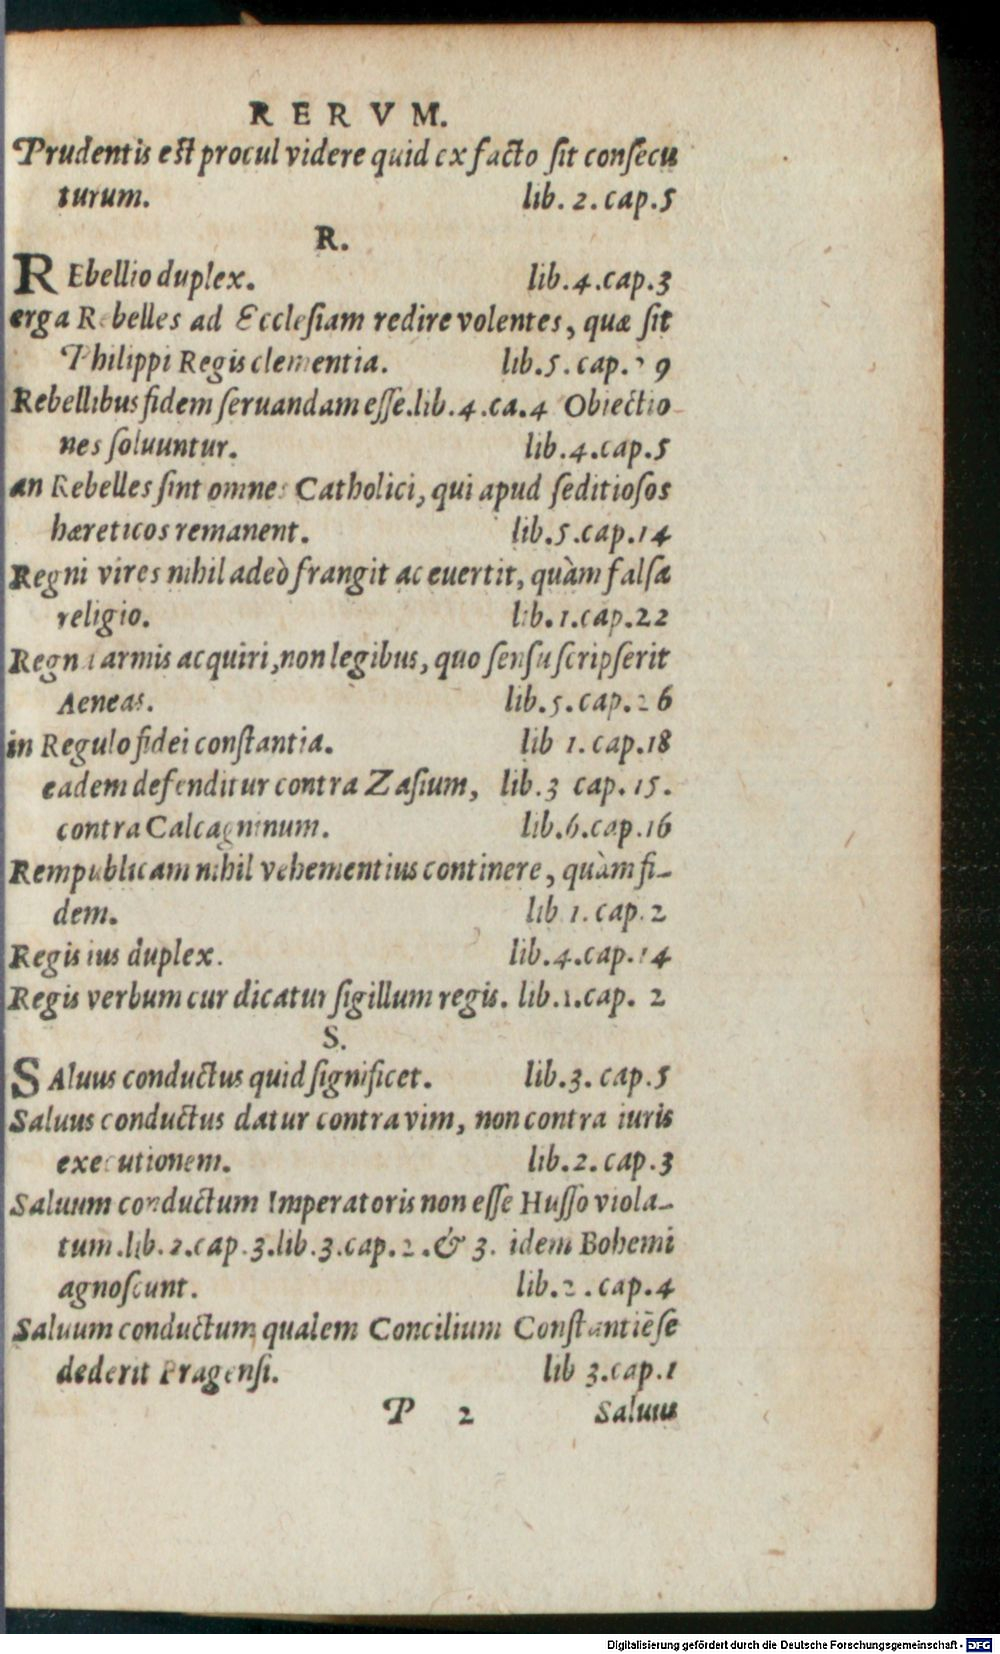 RERVM.
Prudentis est procul videre quid ex facto sit consecu
turum. lib. 2. cap. 5
R.
REbellio duplex. lib. 4. cap. 3
erga Rebelles ad Ecclesiam redire volentes, quæ sit
Philippi Regis clementia. lib. 5. cap. 9
Rebellibus fidem seruandam esse. lib. 4. ca. 4 Obiectio
nes soluuntur. lib. 4. cap. 5
an Rebelles sint omnes Catholici, qui apud seditiosos
hæreticos remanent. lib. 5. cap. 14
Regni vires nihil adeò frangit ac euertit, quàm falsa
religio. lib. 1. cap. 22
Regna armis acquiri, non legibus, quo sensu scripserit
Aeneas. lib. 5. cap. 26
in Regulo fidei constantia. lib 1. cap. 18
eadem defenditur contra Zasium, lib. 3 cap. 15.
contra Calcagninum. lib. 6. cap. 16
Rempublicam nihil vehementius continere, quàm fi-
dem. lib 1. cap. 2
Regis ius duplex. lib. 4. cap. 14
Regis verbum cur dicatur sigillum regis. lib. 1. cap. 2
S.
SAluus conductus quid significet. lib. 3. cap. 5
Saluus conductus datur contra vim, non contra iuris
executionem. lib. 2. cap. 3
Saluum conductum Imperatoris non esse Husso viola-
tum. lib. 2. cap. 3. lib. 3. cap. 2. & 3. idem Bohemi
agnoscunt. lib. 2. cap. 4
Saluum conductum qualem Concilium Constantiẽse
dederit Pragensi. lib 3. cap. 1
P 2 Saluus
Digitalisierung gefördert durch die Deutsche Forschungsgemeinschaft - DFG